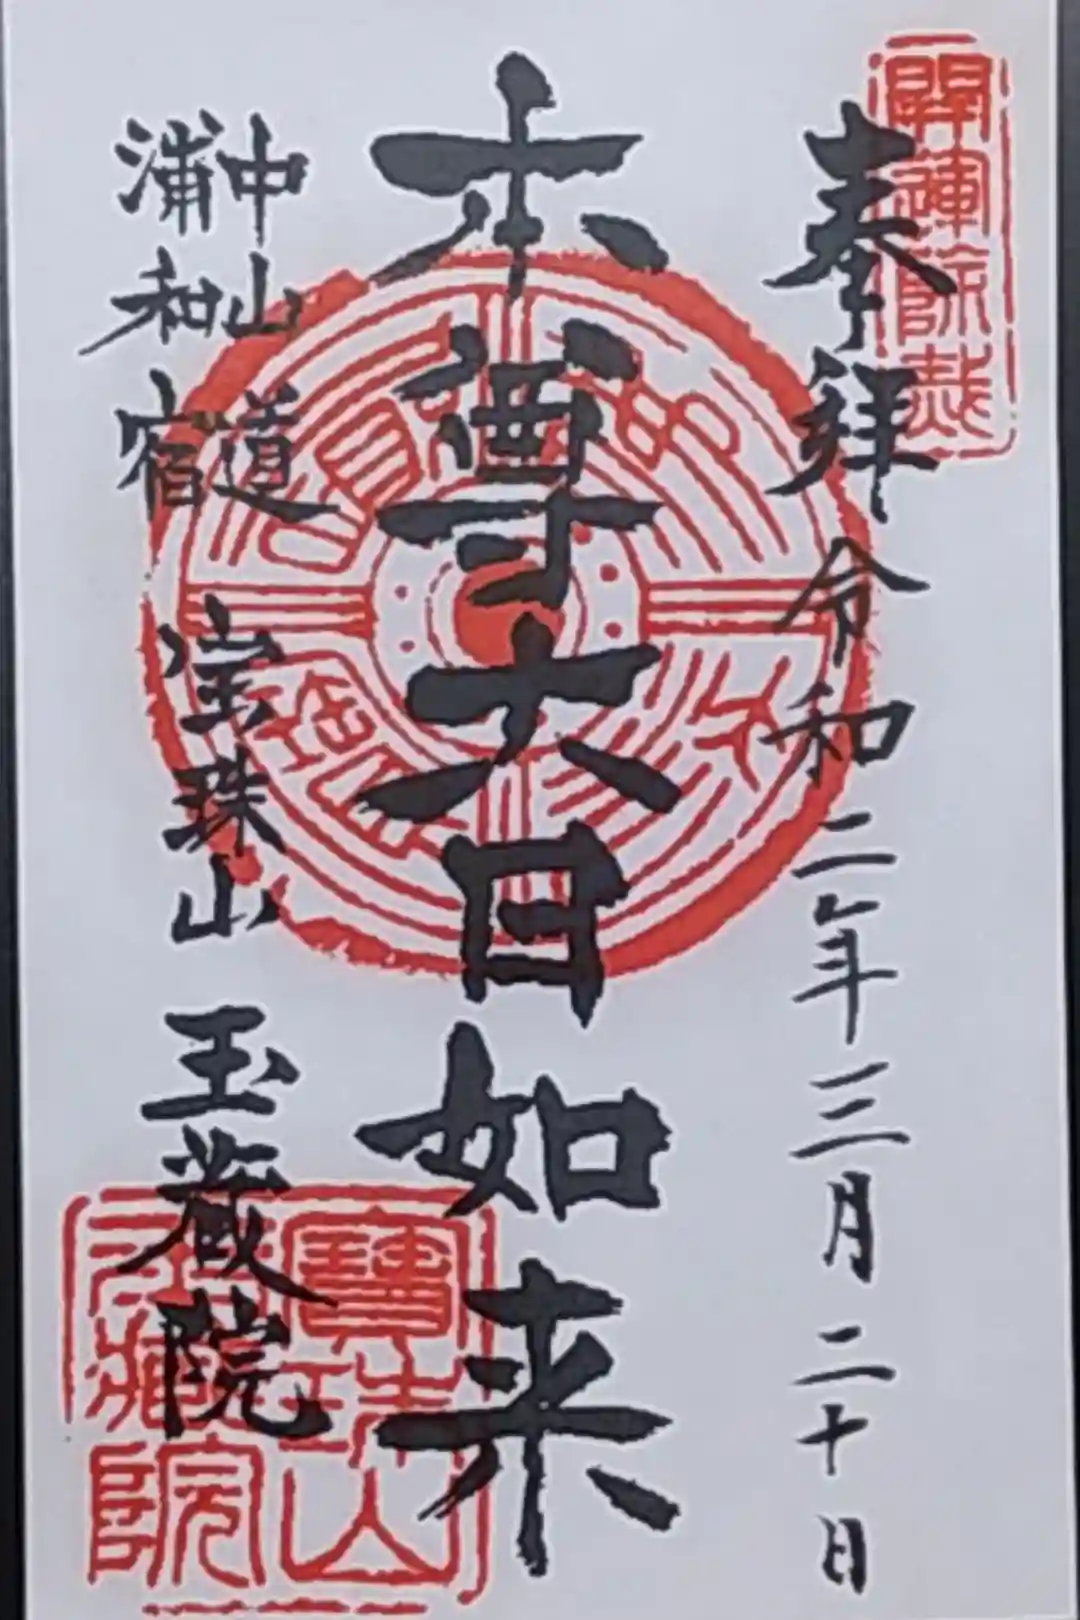 奉拝 令和二年三月二十日
本尊大日如来
中山道
浦和宿
宝珠山 玉蔵院
寶珠山
玉蔵院